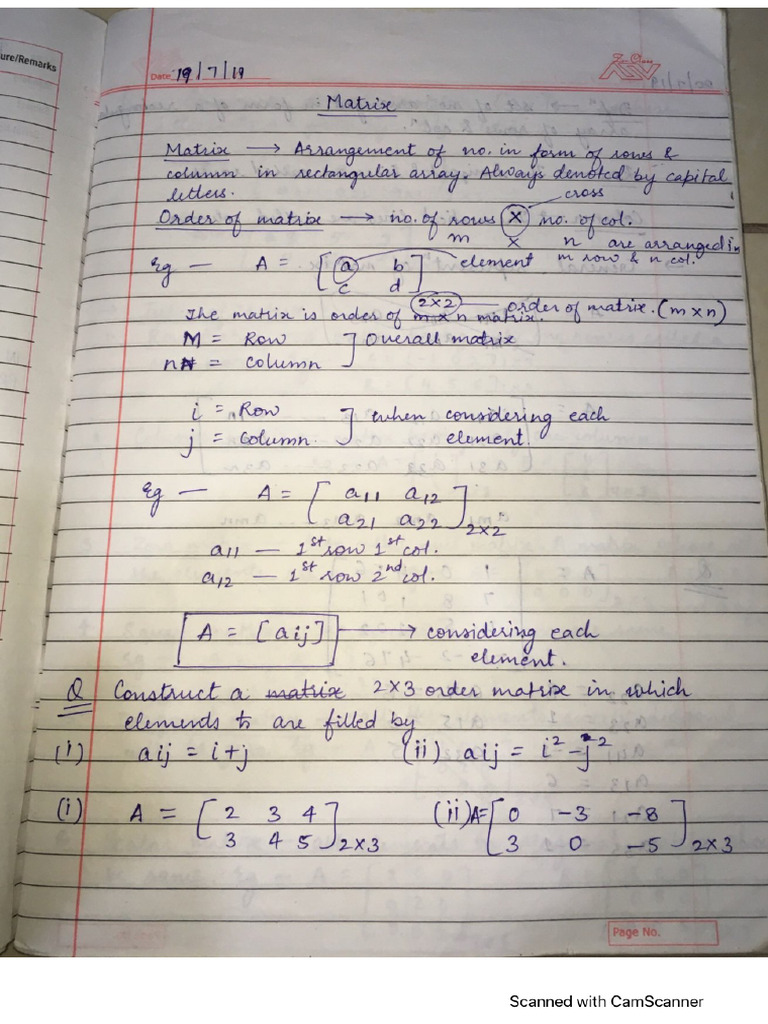 ure/Remarks
Date 19/7/19
: Matrix
Matrix → Arrangement of no. in form of rows &
column in rectangular array. Always denoted by capital
letters.
cross
Order of matrix → no. of rows × no. of col.
m × n are arranged in
m row & n col.
Eg — A = [a b
c d]
element
2×2 — order of matrix. (m×n)
The matrix is order of m×n matrix.
M = Row
n = Column
] Overall matrix
i = Row
j = Column.
] when considering each
element.
Eg — A = [a11 a12
a21 a22] 2×2
a11 — 1st row 1st col.
a12 — 1st row 2nd col.
A = [aij] → considering each
element.
Q Construct a matrix 2×3 order matrix in which
elements are filled by
(i) aij = i+j (ii) aij = i² - j²
(i) A = [2 3 4
3 4 5] 2×3
(ii) A = [0 -3 -8
3 0 -5] 2×3
Page No.
Scanned with CamScanner